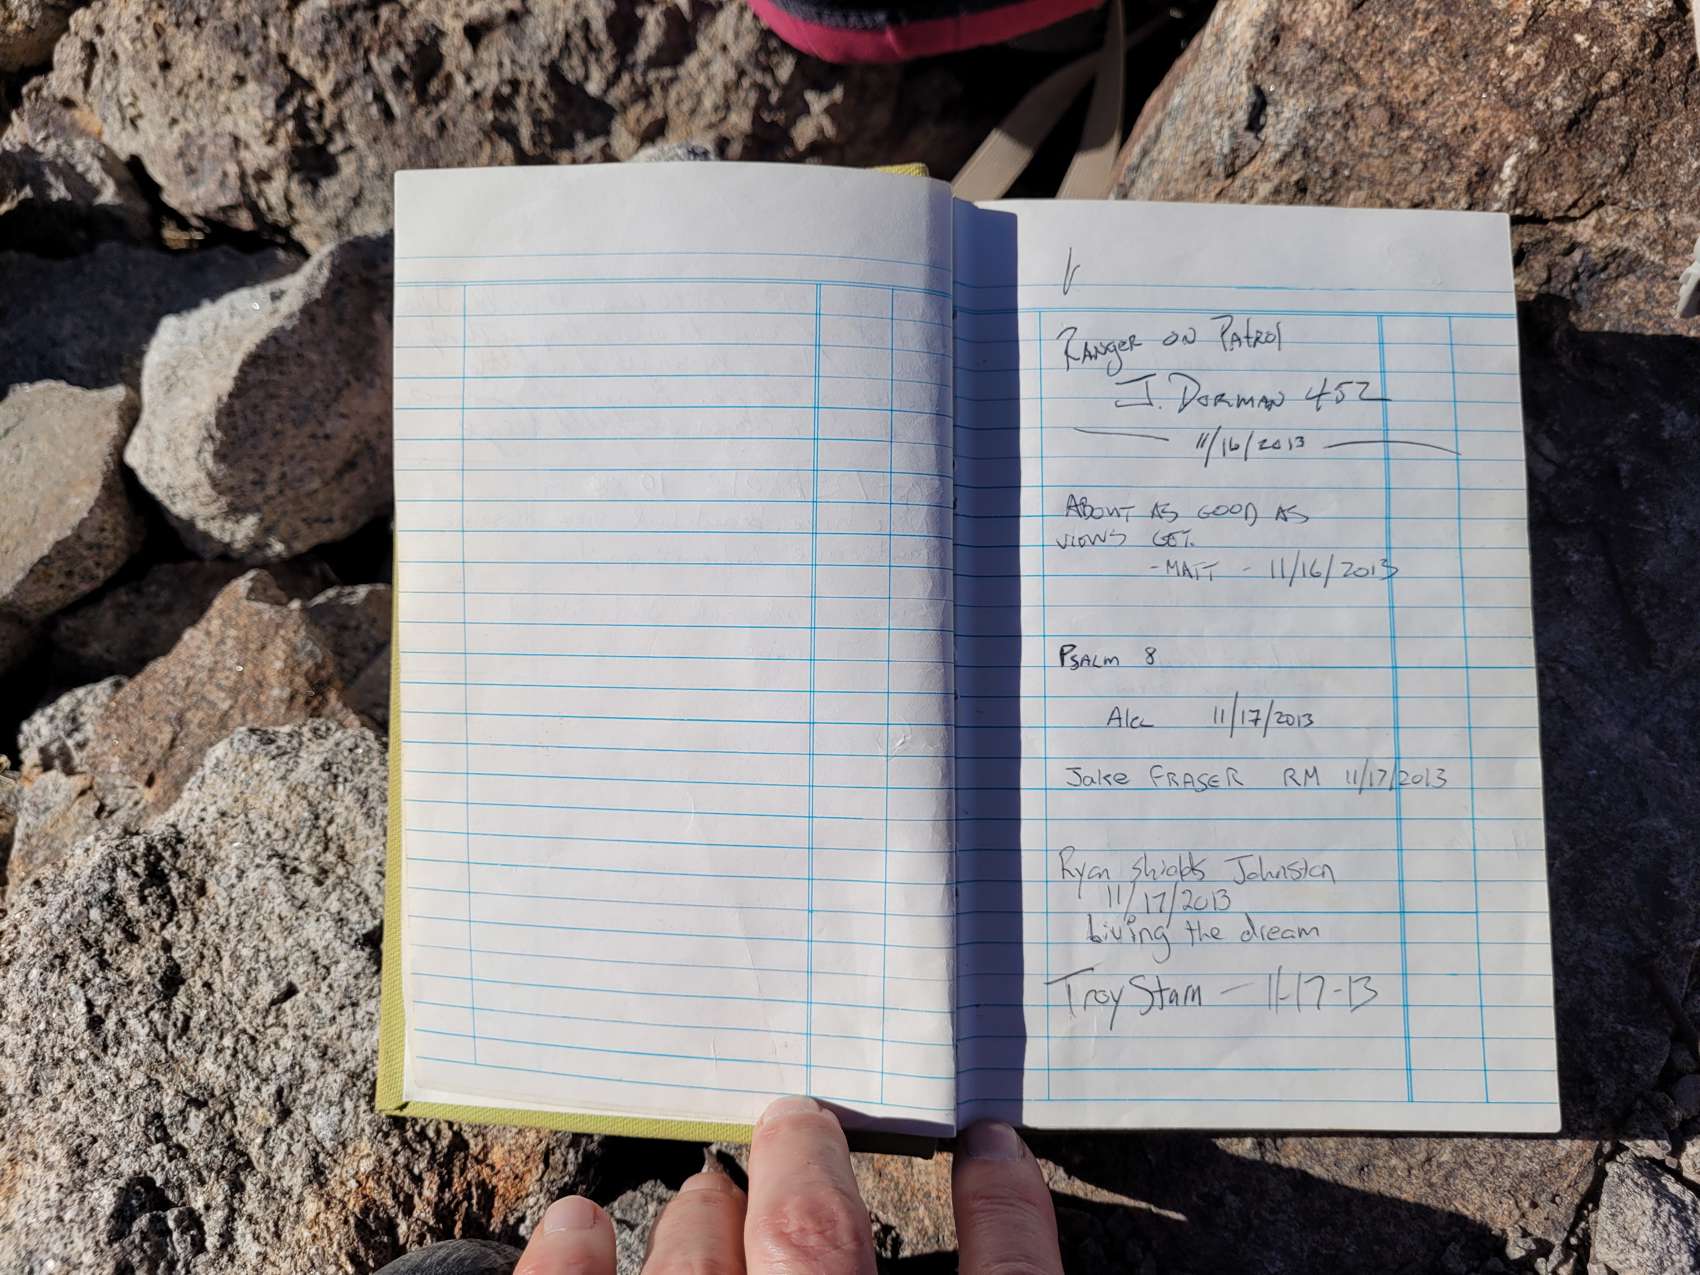 Ranger on Patrol
J. Dorman 452
11/16/2013
ABOUT AS GOOD AS
VIEWS GET.
-MATT - 11/16/2013
Psalm 8
11/17/2013
Jake FRASER RM 11/17/2013
Ryan Johnston
11/17/2013
Living the dream
Troy Stam - 11-17-13